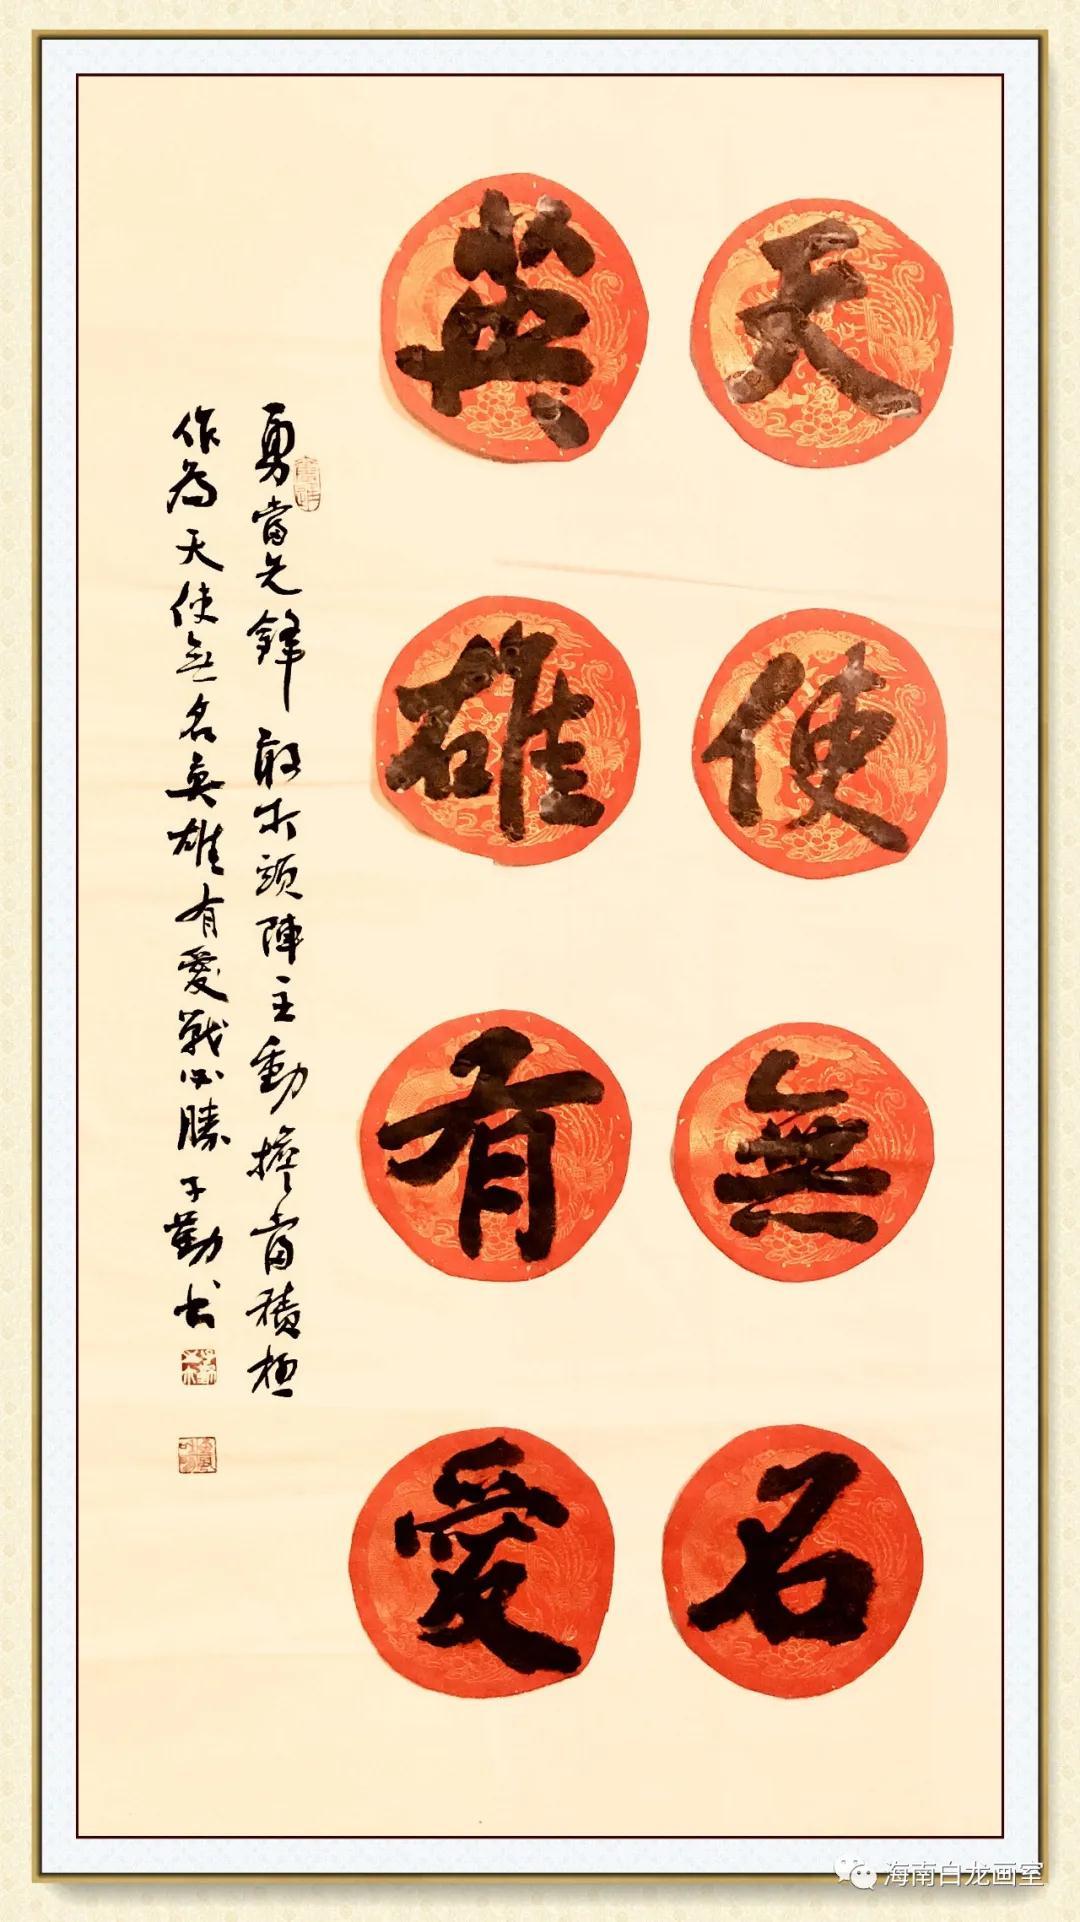 天使無名
英雄有愛
勇當先鋒敢打頭陣主動擔當積極
作為天使無名英雄有愛戰必勝子勤书
海南白龙画室